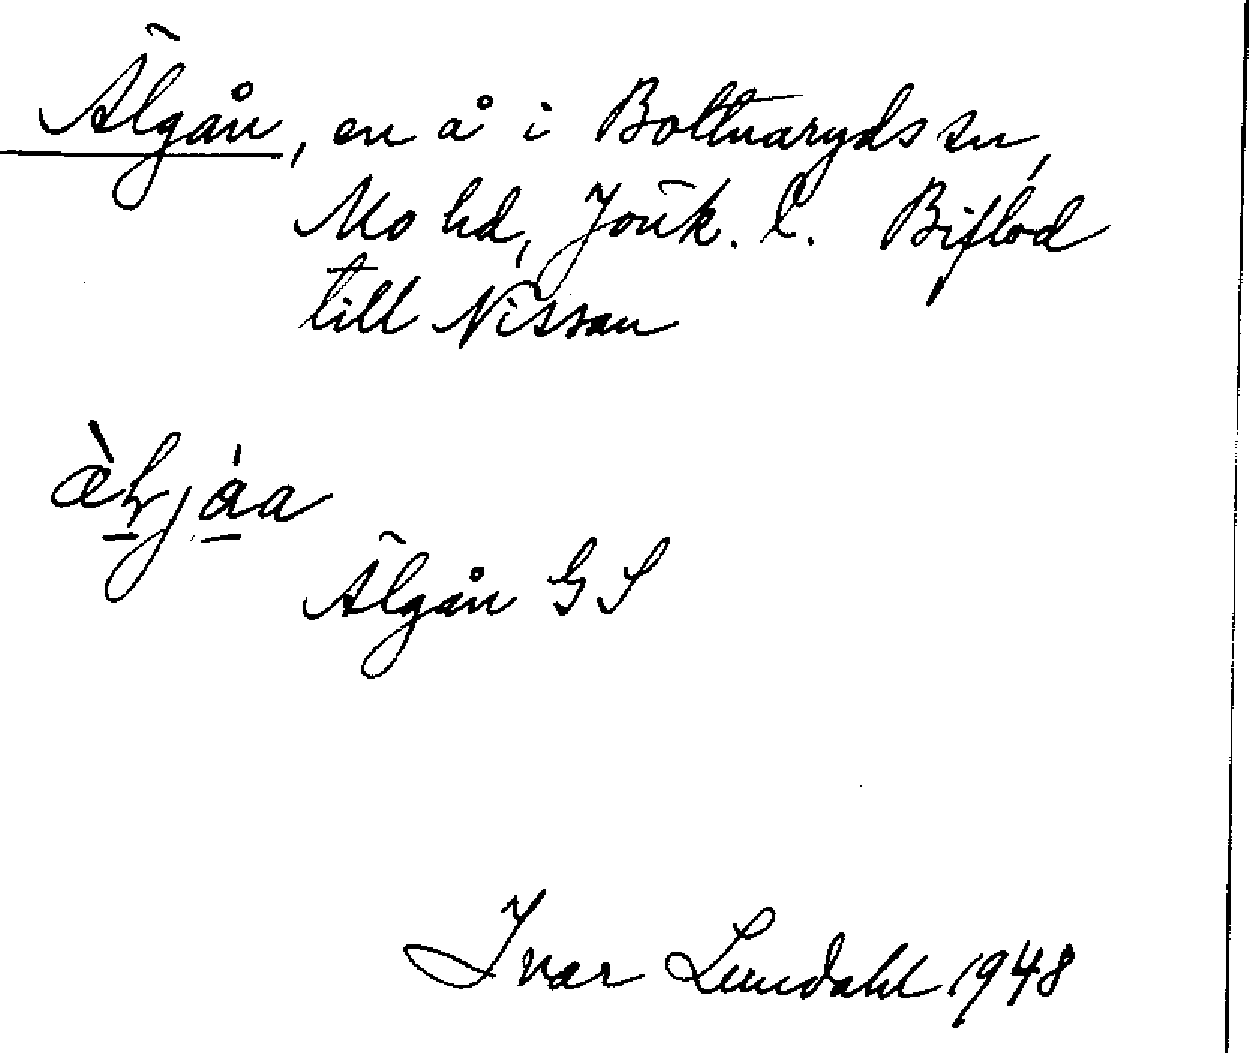 Älgån, en å i Bottnaryds sn,
Mo hd, Jönk. l. Biflod
till Nissan
Älgån GS
Ivar Lundahl 1948